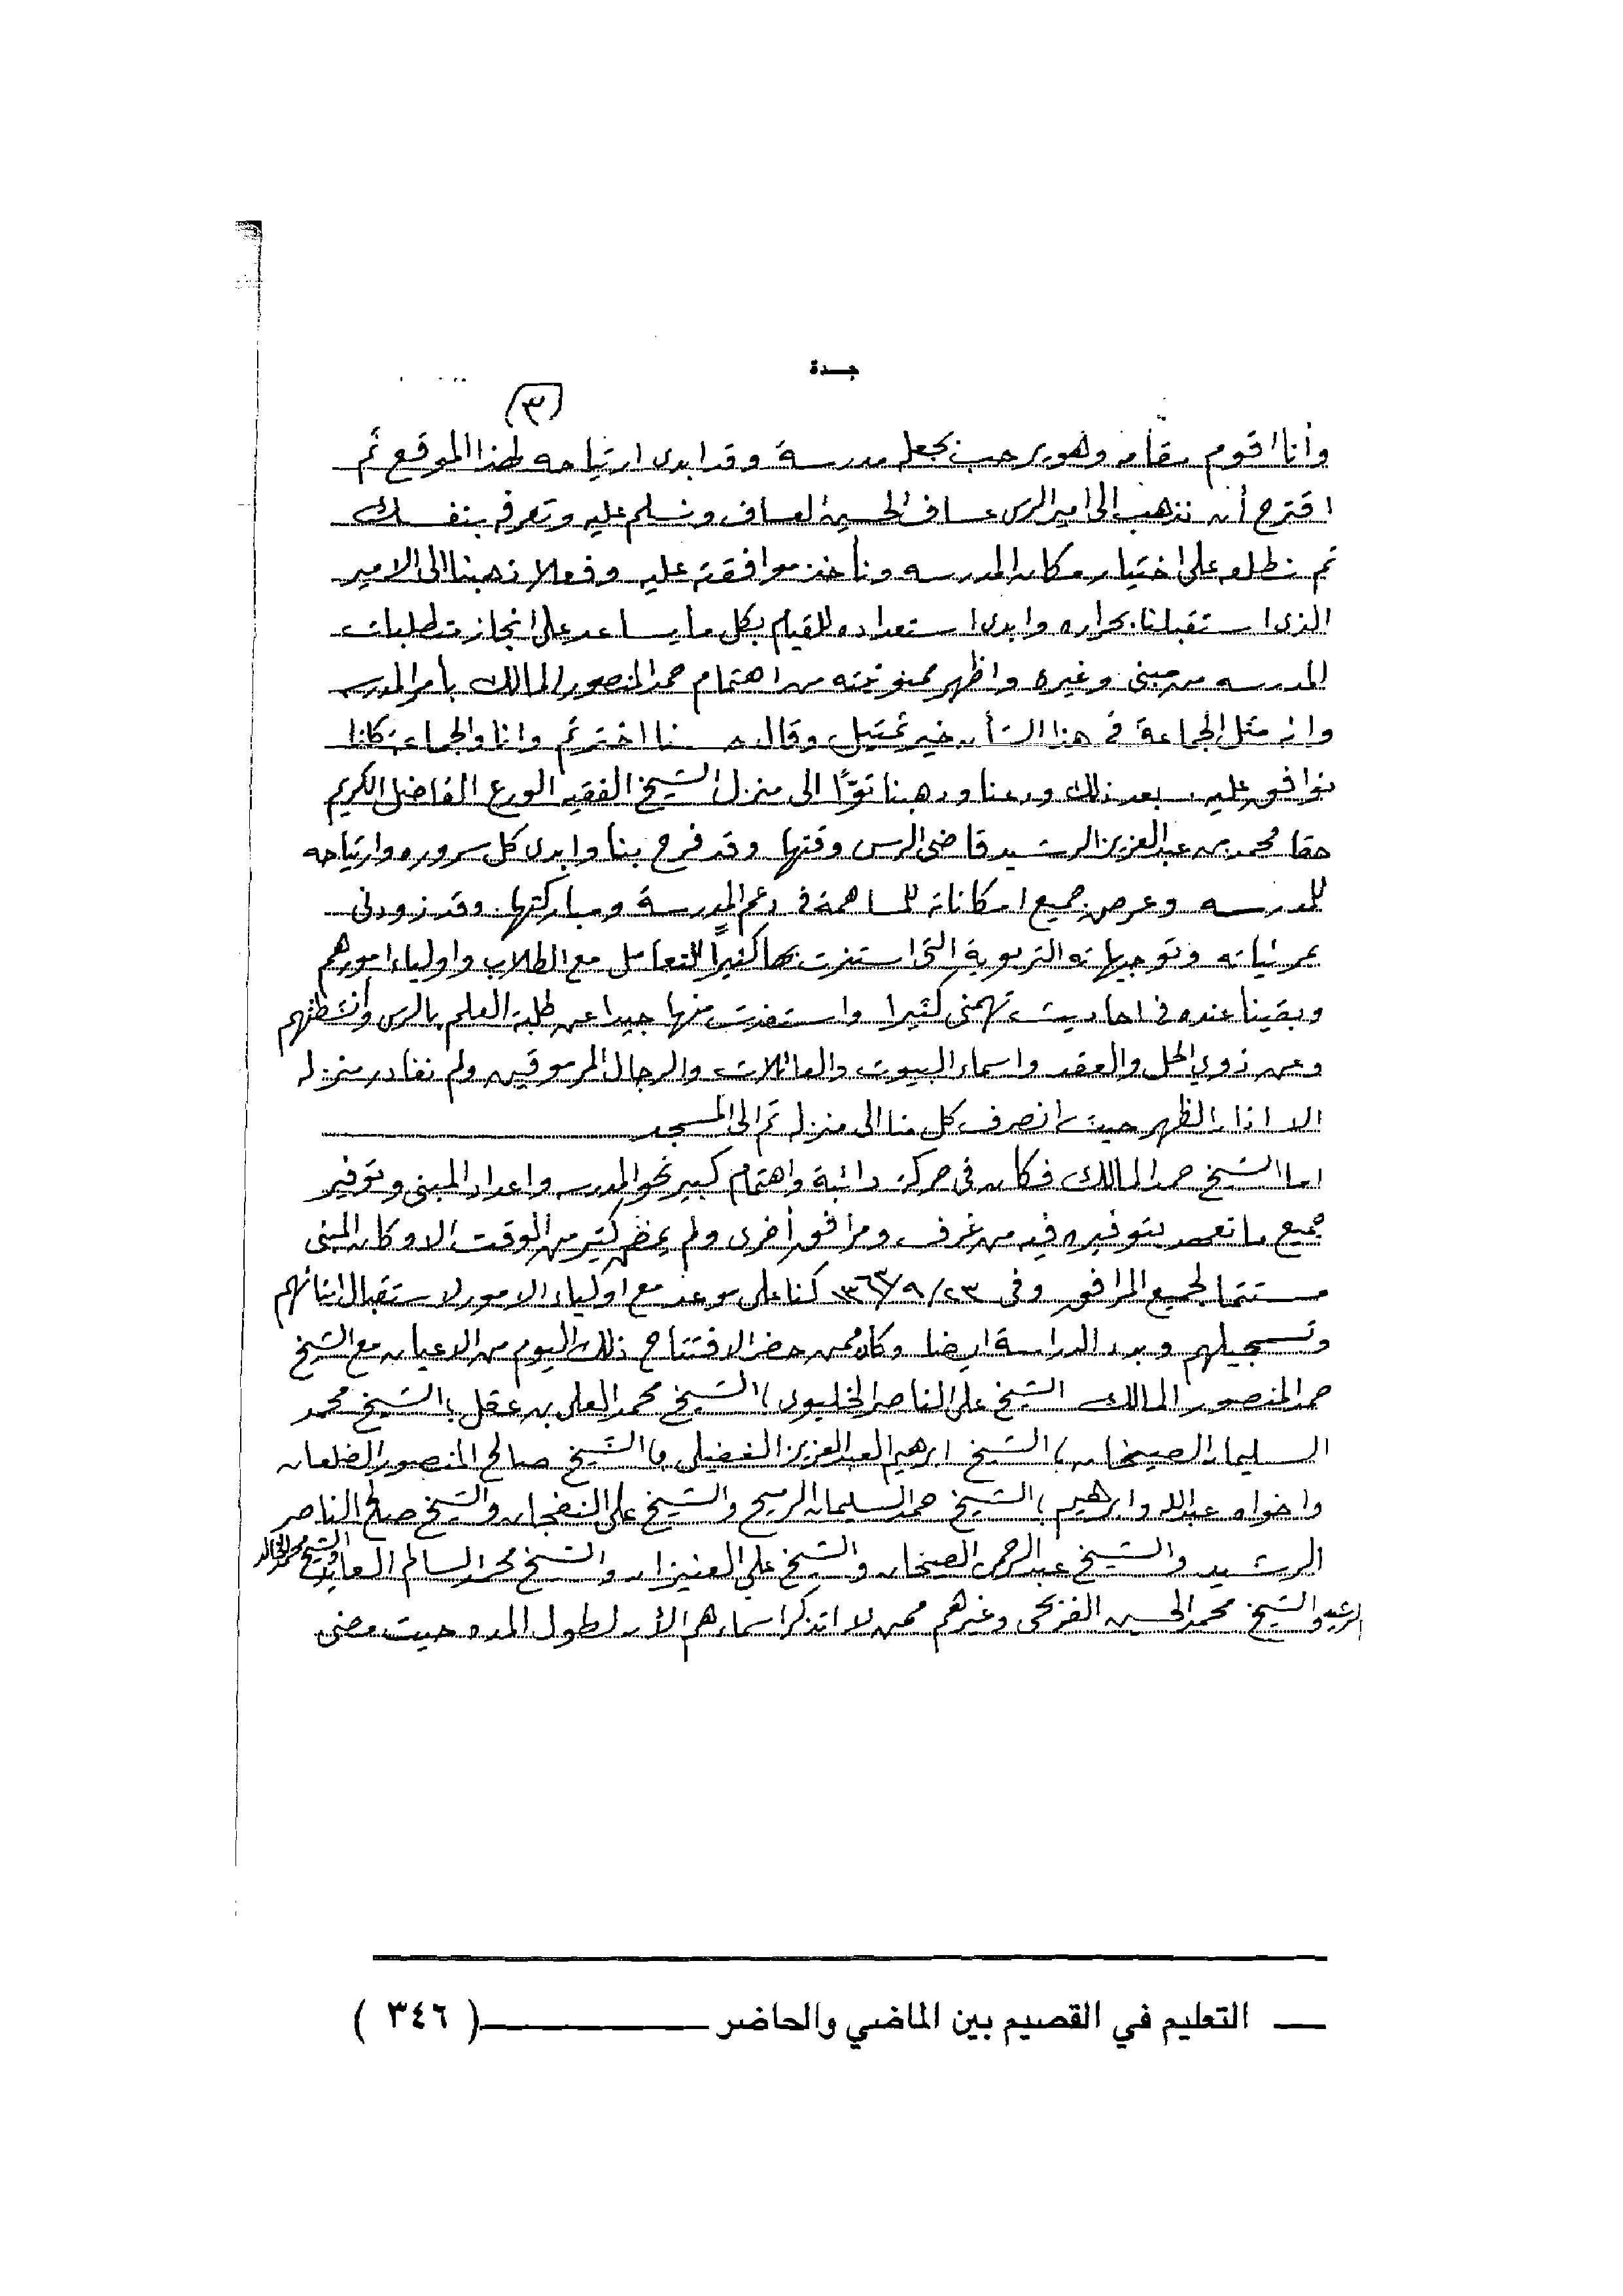 جدة
(٣)
وأنا اقوم مقامه وهو يرحب بجعله مدرسة وقد ابدى ارتياحه لهذا الموقع ثم
اقترح أن نذهب الى امير الرس عساف الحسين العساف ونسلم عليه وتعرفه بنفسك
ثم نطلعه على اختيار مكان المدرسه ونأخذ موافقته عليه وفعلا ذهبنا الى الامير
الذى استقبلنا بحراره وابدى استعداده للقيام بكل ما يساعد على انجاز متطلبات
المدرسه من مبنى وغيره واظهر ممنونيته من اهتمام حمد المنصور المالك بأمر المدرسه
وانه مثل الجماعة فى هذا الشأن خير تمثيل وقال حسنا اخترتم وانا والجماعة كلنا
نوافق عليه بعد ذلك ودعنا وذهبنا توًا الى منزل الشيخ الفقيه الورع الفاضل الكريم
حقا محمد بن عبدالعزيز الرشيد قاضى الرس وقتها وقد فرح بنا وابدى كل سروره وارتياحه
للمدرسه وعرض جميع امكاناته للمساهمة فى دعم المدرسة ومباركتها. وقد زودنى
بمرئياته وتوجيهاته التربوية التى استفدت بها كثيراً للتعامل مع الطلاب واولياء امورهم
وبقينا عنده فى احاديث تهمنى كثيرا واستفدت منها جيدا عن طلبة العلم بالرس وأنشطتهم
وعن ذوي الحل والعقد واسماء البيوت والعائلات والرجال المرموقين ولم نغادر منزله
الا اذان الظهر حيث انصرف كل منا الى منزله ثم الى المسجد
اما الشيخ حمد المالك فكان فى حركة دائبة واهتمام كبير نحو المدرسه واعداد المبنى وتوفير
جميع ما تعهد بتوفيره فيه من غرف ومرافق أخرى ولم يمض كثير من الوقت الا وكان المبنى
مستتما لجميع المرافق وفى ٢٣/٩/١٣٦٣ كنا على موعد مع اولياء الامور لاستقبال ابنائهم
وتسجيلهم وبدء الدراسة ايضا وكان ممن حضر الافتتاح ذلك اليوم من الاعيان مع الشيخ
حمد المنصور المالك الشيخ على الناصر الخليوى، الشيخ محمد العلى بن عقل، الشيخ محمد
السليمان الصيخان، الشيخ ابرهيم العبدالعزيز الغفيلى، الشيخ صالح المنصور الضلعان
واخواه عبدالله وابرهيم، الشيخ حمد السليمان الرميح والشيخ على النفجان والشيخ صالح الناصر
الرشيد والشيخ عبدالرحمن الصيخان والشيخ على العنيزان والشيخ محمد السالم العايد والشيخ محمد الخالد
الرشيد والشيخ محمد الحسين القزحى وغيرهم ممن لا اتذكر اسماءهم الآن لطول المده حيث مضى
— التعليم في القصيم بين الماضي والحاضر ———( ٣٤٦ )